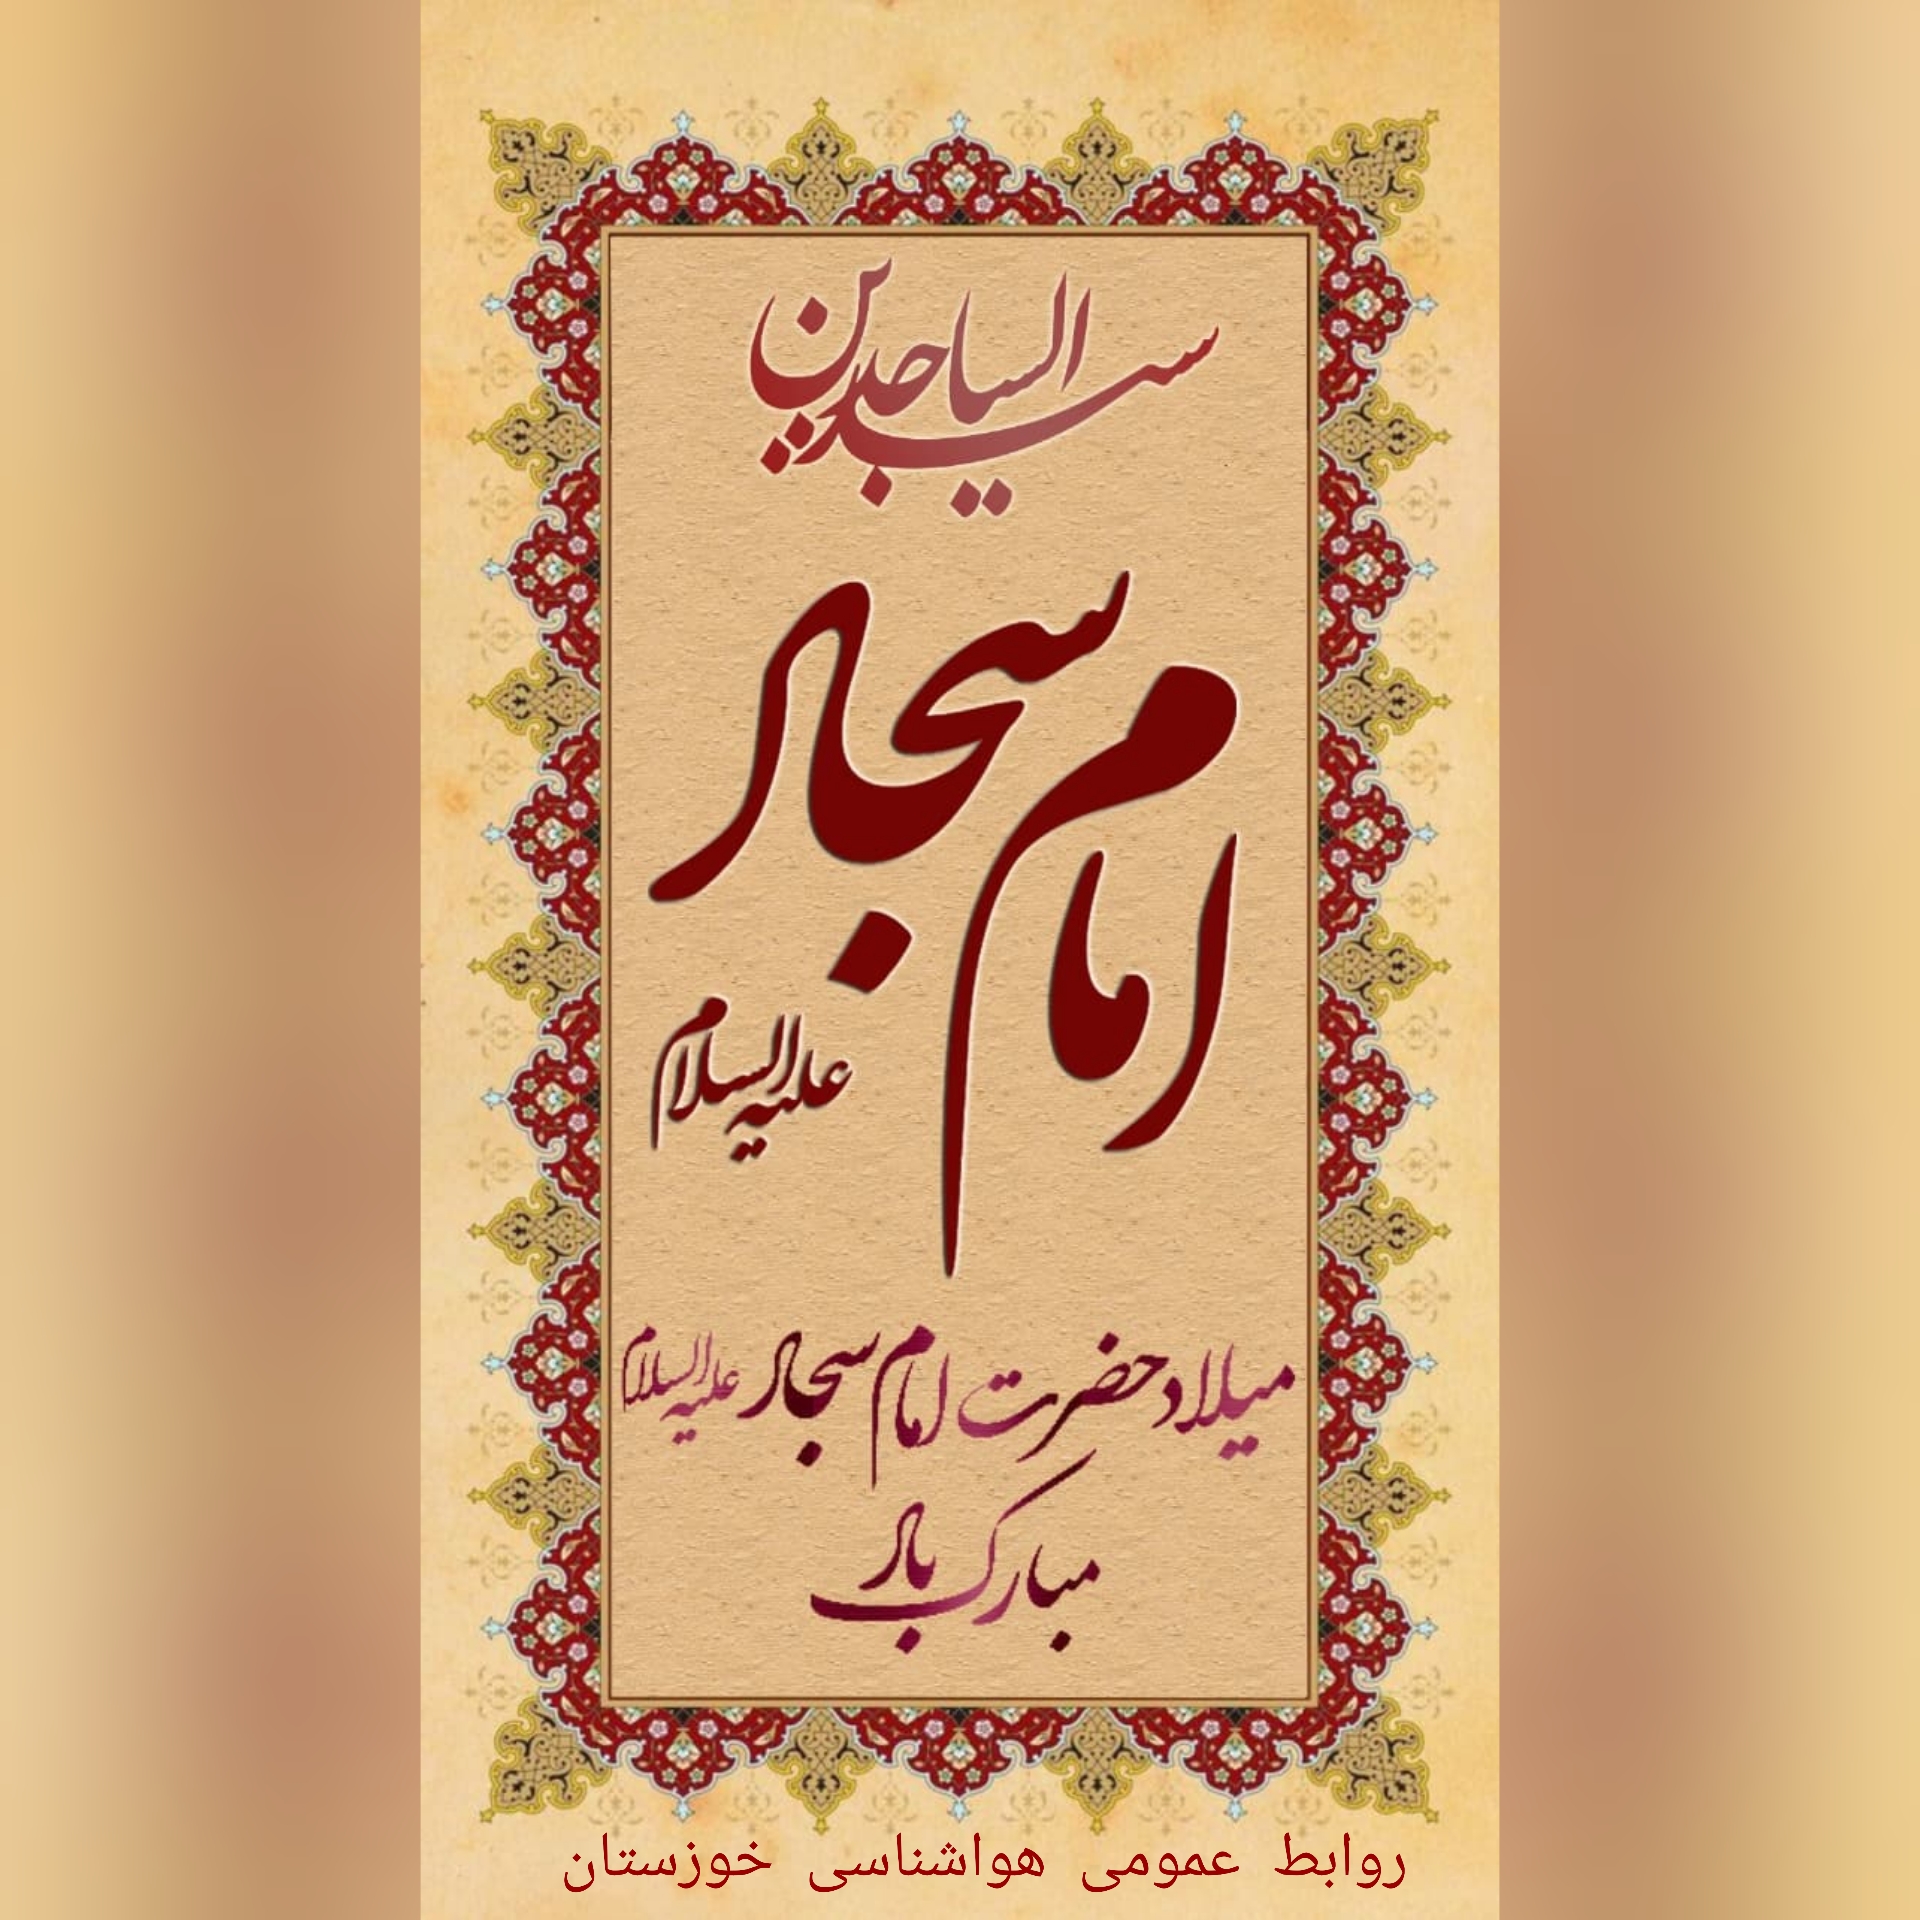 سید الساجدین
امام سجاد
علیه السلام
میلاد حضرت امام سجاد علیه السلام
مبارک باد
روابط عمومی هواشناسی خوزستان